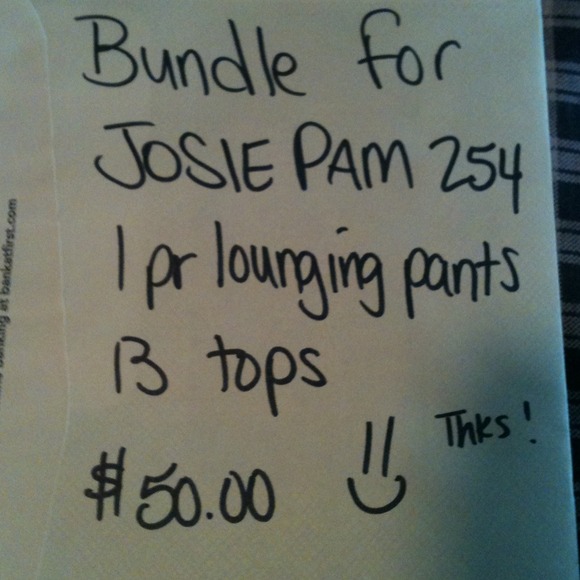 Bundle for
JOSIE PAM 254
1 pr lounging pants
13 tops
$50.00
Thks!
banking at bankatfirst.com